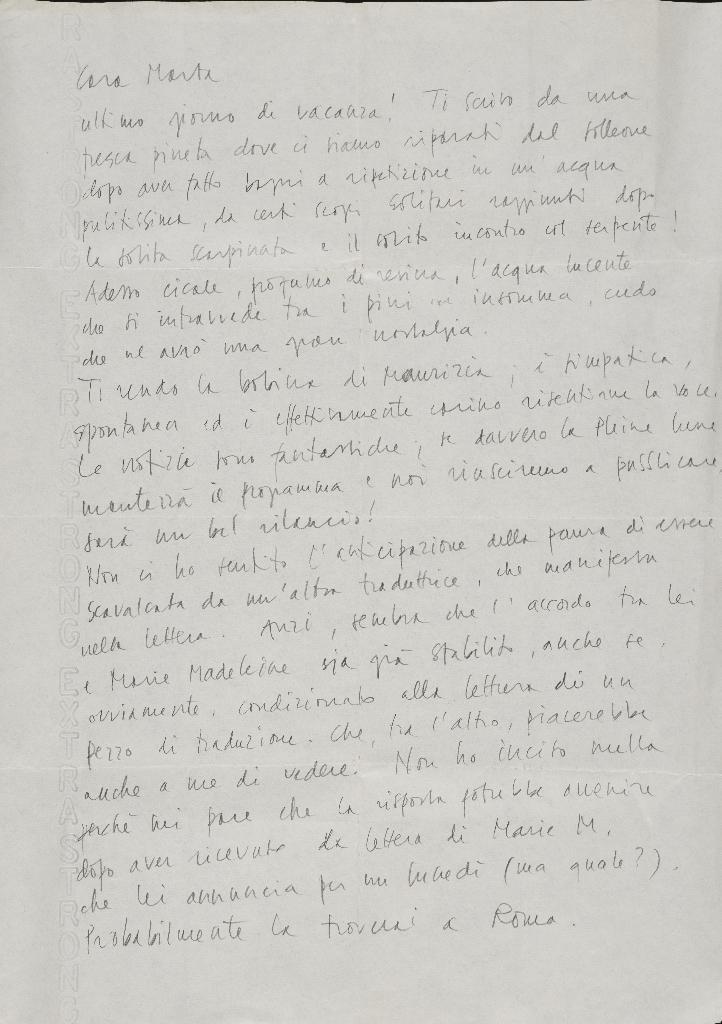 Cara Marta
ultimo giorno di vacanza! Ti scrivo da una
fresca pineta dove ci siamo riparati dal solleone
dopo aver fatto bagni a ripetizione in un'acqua
pulitissima, da certi scogli solitari raggiunti dopo
la solita scarpinata e il solito incontro col serpente!
Adesso cicale, profumo di resina, l'acqua lucente
che si intravvede tra i pini insomma, credo
che ne avrò una gran nostalgia.
Ti rendo la bobina di Maurizia; è simpatica,
spontanea ed è effettivamente carino risentirne la voce.
Le notizie sono fantastiche; se davvero la Pleine Lune
manterrà il programma e noi riusciremo a pubblicare,
sarà un bel rilancio!
Non ci ho sentito l'anticipazione della paura di essere
scavalcata da un'altra traduttrice, che manifesta
nella lettera. Anzi, sembra che l'accordo tra lei
e Marie Madeleine sia già stabilito, anche se,
ovviamente, condizionato alla lettura di un
pezzo di traduzione. Che, tra l'altro, piacerebbe
anche a me di vedere! Non ho inciso nulla
perché mi pare che la risposta potrebbe avvenire
dopo aver ricevuto la lettera di Marie M.
che lei annuncia per un lunedì (ma quale?).
Probabilmente la troverai a Roma.
EXTRASTRONG EXTRASTRONG